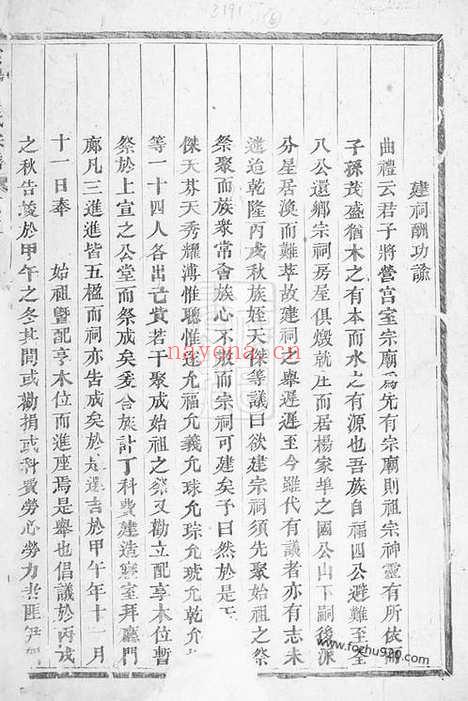 2191
建祠酬功諭
曲禮云君子將營宮室宗廟爲先有宗廟則祖宗神靈有所依而
子孫茂盛猶木之有本而水之有源也吾族自福四公避難至
八公還鄉宗祠房屋俱燬就庄而居楊家埠之國公山下嗣後派
分星居渙而難萃故建祠之舉遲遲至今雖代有議者亦有志未
逮迨乾隆丙戌秋族姪天傑等議曰欲建宗祠須先聚始祖之祭
祭聚而族衆常會族心不散而宗祠可建矣予曰然於是
傑天芬天秀耀溥惟聰惟建允福允義允球允琮允琥允乾允
等一十四人各出己貲若干聚成始祖之祭又勸立配享木位暫
祭於上宣之公堂而祭成矣委合族計丁科費建造寢室拜廳門
廊凡三進進皆五楹而祠亦告成矣於是選吉於甲午年十一月
十一日奉 始祖暨配享木位而進座焉是舉也倡議於丙戌
之秋告竣於甲午之冬其間或勸捐或科費勞心勞力
nayona.cn
www.fozhu920.com